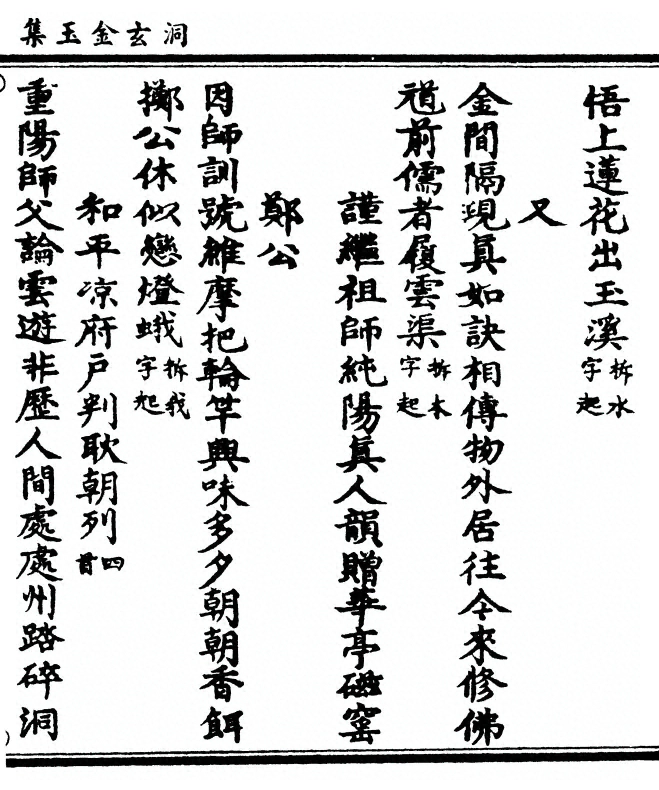 洞玄金玉集
悟上蓮花出玉溪拆水字起
又
金間隔現眞如訣相傳物外居往今來修佛
道前儒者履雲渠拆木字起
謹繼祖師純陽眞人韻贈華亭磁窰
鄭公
因師訓號維摩把輪竿興味多夕朝朝香餌
擲公休似戀燈蛾拆我字起
和平凉府戶判耿朝列四首
重陽師父論雲遊非歷人間處處州踏碎洞